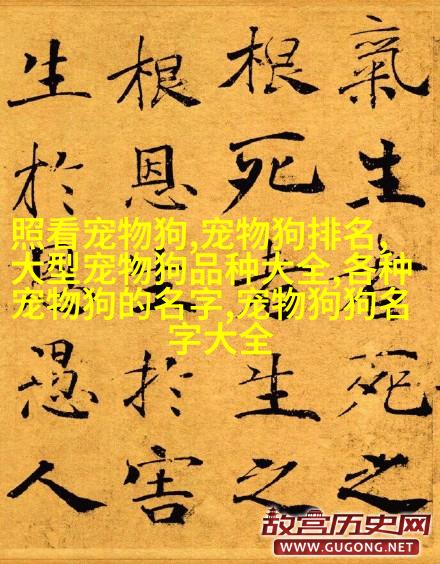 氣生死之
根死生之
根恩於害
生於愚人
照看宠物狗,宠物狗排名,
大型宠物狗品种大全,各种
宠物狗的名字,宠物狗狗名
字大全
故宫历史网
WWW.GUGONG.NET